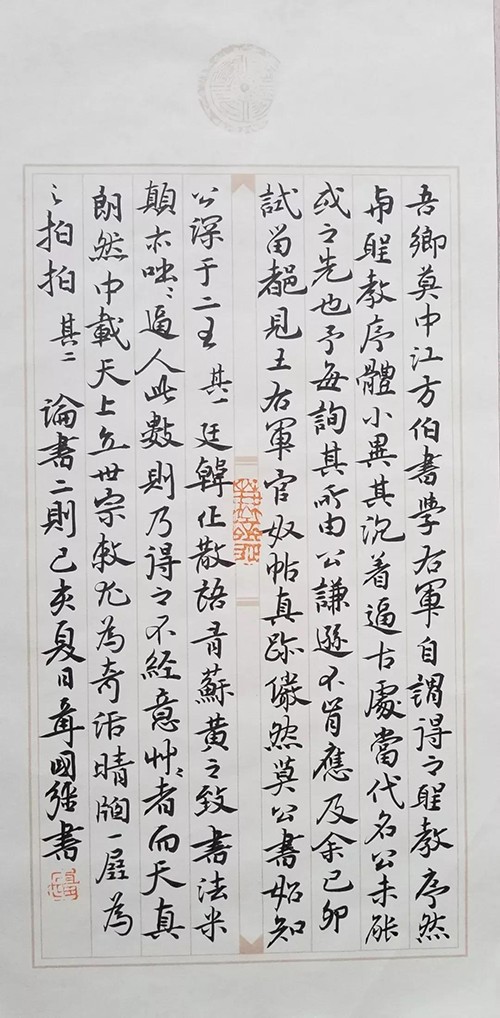 吾鄉莫中江方伯書學右軍自謂得之聖教序然
與聖教序體小異其沉着逼古處當代名公未能
或之先也予每詢其所由公謙遜不肯應及余己卯
試留都見王右軍官奴帖真跡儼然莫公書始知
公深于二王 其一 廷韓散語有蘇黃之致書法米
顛亦咄咄逼人此數則乃得之不經意艸艸者而天真
朗然中載天上立世宗敕尤為奇活晴牕一展為
之拍拍 其二 論書二則己亥夏日國強書